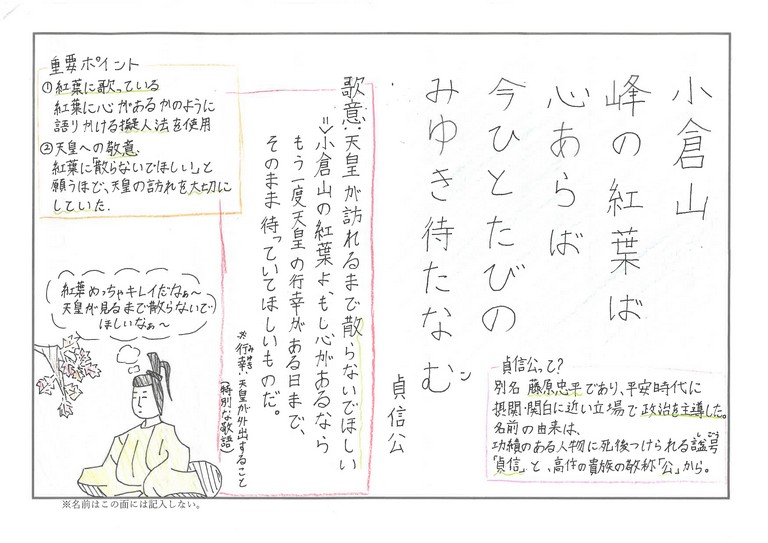 小倉山
峰の紅葉ば
心あらば
今ひとたびの
みゆき待たなむ
ン
貞信公
歌意:天皇が訪れるまで散らないでほしい
⇒小倉山の紅葉よ、もし心があるなら
もう一度天皇の行幸がある日まで、
そのまま待っていてほしいものだ。
※行幸:天皇が外出すること
みゆき
(特別な敬語)
重要ポイント
①紅葉に歌っている
紅葉に心があるかのように
語りかける擬人法を使用
②天皇への敬意
紅葉に「散らないでほしい」と
願うほど、天皇の訪れを大切に
していた.
紅葉めっちゃキレイだなぁ〜
天皇が見るまで散らないで
ほしいなぁ〜
貞信公って?
別名 藤原忠平であり、平安時代に
摂関・関白に近い立場で政治を主導した。
名前の由来は、
功績のある人物に死後つけられる諡号
しごう
「貞信」と、高位の貴族の敬称「公」から。
※名前はこの面には記入しない。